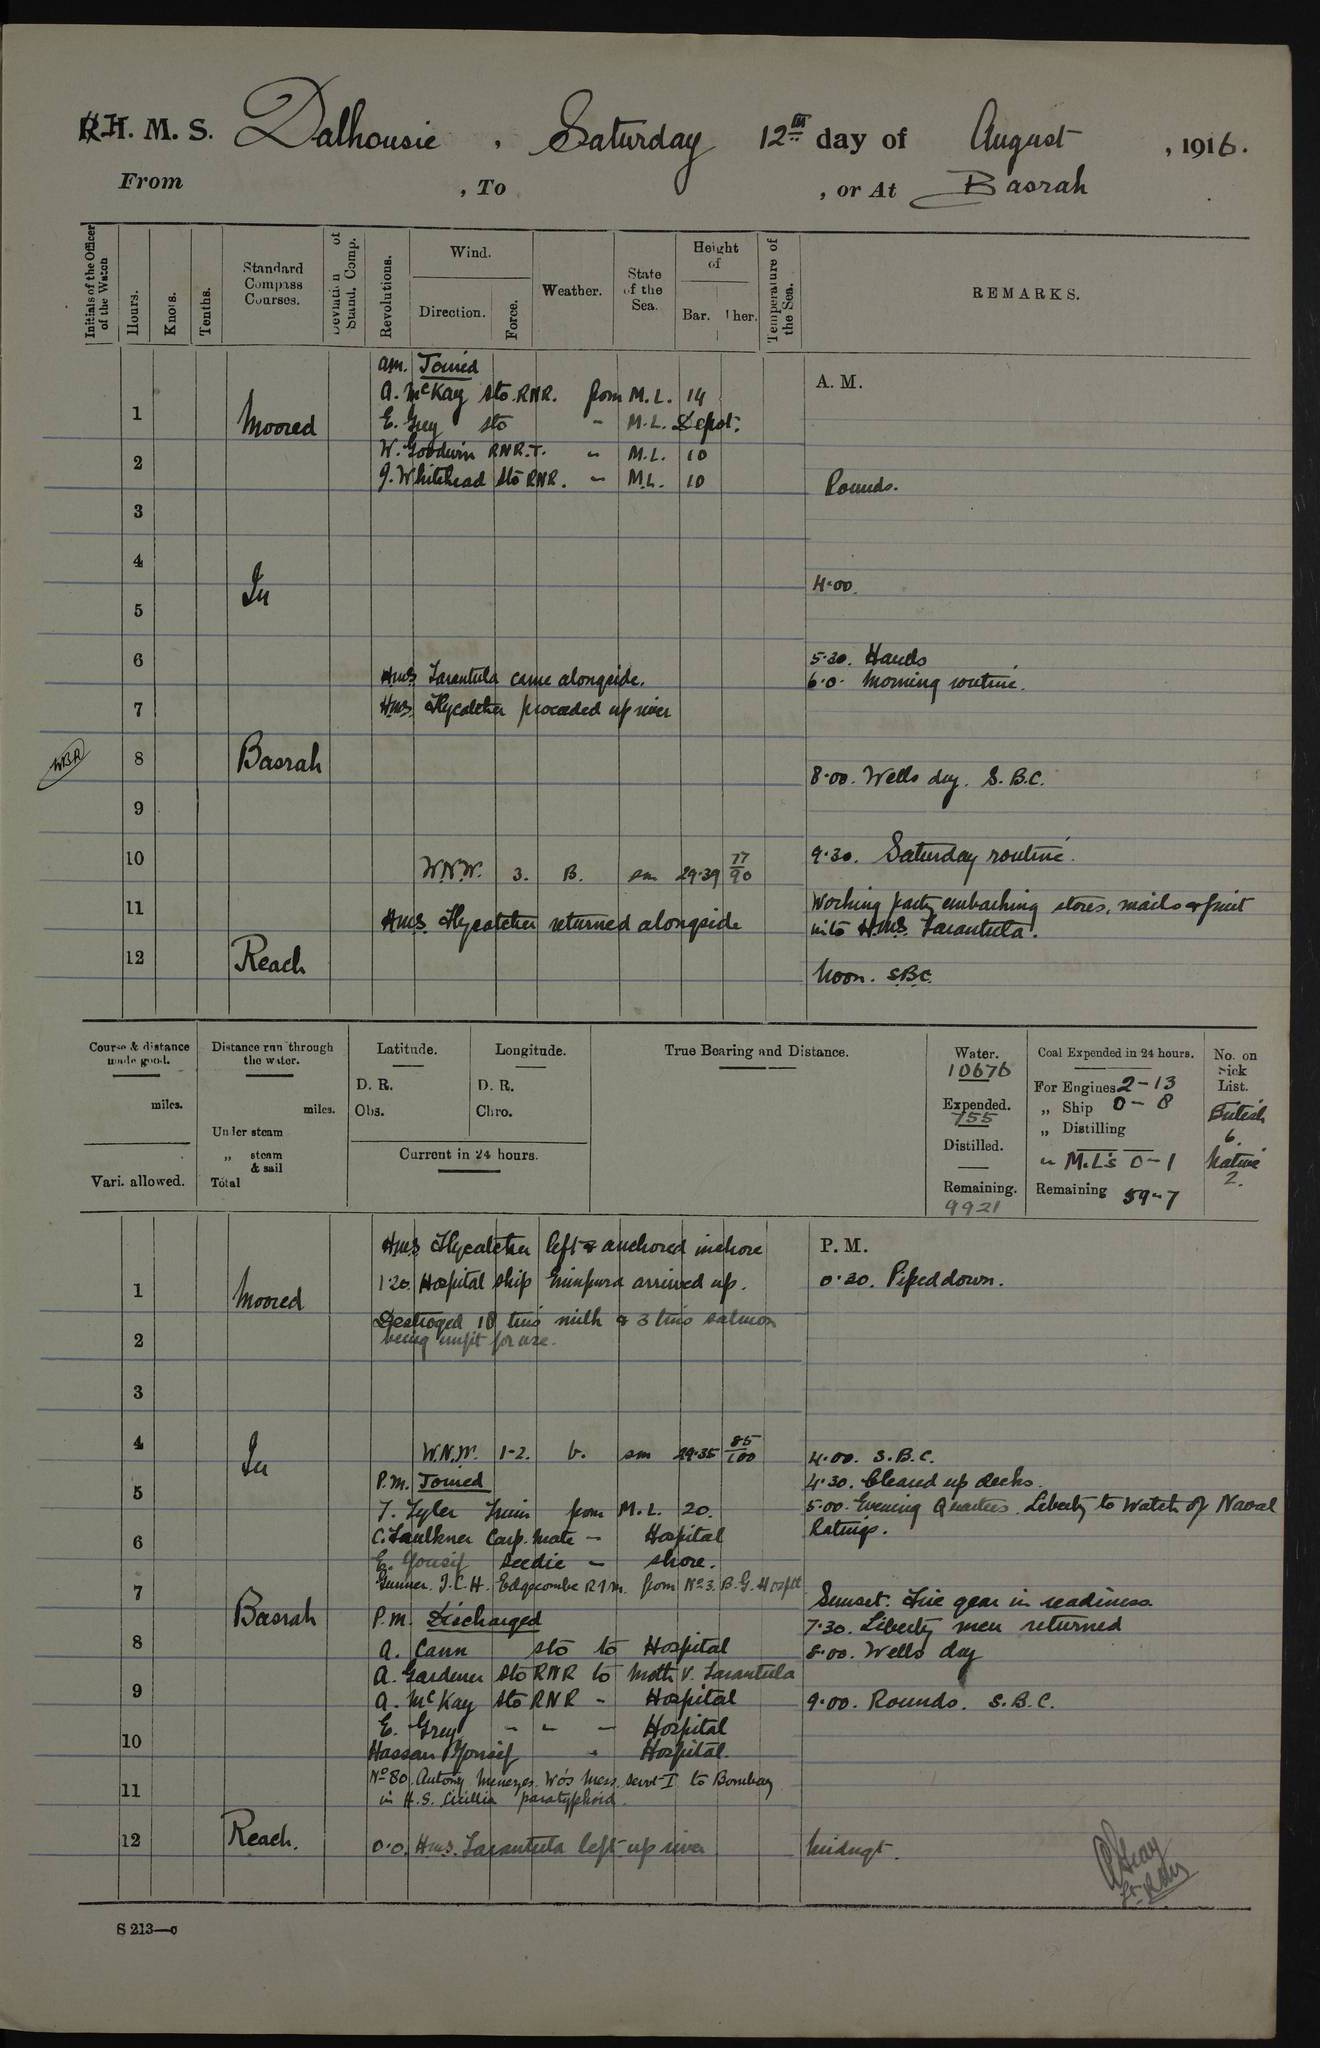 R.I.H. M. S. Dalhousie, Saturday 12th day of August, 1916.
From , To , or At Basrah
Initials of the Officer of the Watch
Hours.
Knots.
Tenths.
Standard Compass Courses.
Deviation of Stand. Comp.
Revolutions.
Wind.
Direction.
Force.
Weather.
State of the Sea.
Height of
Bar.
Ther.
Temperature of the Sea.
REMARKS.
am. Joined
A. McKay Sto. RNR. from M.L. 14
A. M.
1
Moored
E. Grey sto " M.L. Depot.
W. Goodwin RNR.T. " M.L. 10
2
J. Whitehead Sto RNR. " M.L. 10
Rounds.
3
4
In
4.00.
5
6
5.30. Hands
HMS Tarantula came alongside.
6.0. Morning routine.
7
HMS Flycatcher proceeded up river
WBR
8
Basrah
8.00. Wells dry. S.B.C.
9
10
W.N.W. 3. B. sm 29.39 77/90
9.30. Saturday routine.
11
Working party embarking stores, mails & fruit
HMS. Flycatcher returned alongside
into HMS. Tarantula.
12
Reach
Noon. S.B.C.
Course & distance made good.
miles.
Vari. allowed.
Distance run through the water.
miles.
Under steam
„ steam & sail
Total
Latitude.
D. R.
Obs.
Longitude.
D. R.
Chro.
Current in 24 hours.
True Bearing and Distance.
Water.
10676
Expended.
755
Distilled.
Remaining.
9921
Coal Expended in 24 hours.
For Engines 2-13
„ Ship 0-8
„ Distilling
" M.L's 0-1
Remaining 59-7
No. on Sick List.
British
6.
Native
2.
HMS Flycatcher left & anchored inshore
P. M.
1
Moored
1.20. Hospital ship arrived up.
0.30. Piped down.
Destroyed 18 tins milk & 3 tins salmon
2
being unfit for use.
3
4
In
W.N.W. 1-2. b. sm 29.35 85/100
4.00. S.B.C.
P.M. Joined
4.30. Cleared up decks.
5
T. Tyler from M.L. 20.
5.00. Evening Quarters. Liberty to Watch of Naval
C. Faulkner Carp. Mate " Hospital
Ratings.
6
E. Yousif Seedie " shore.
Gunner. J.C.H. Edgecombe RIM. from No 3. B.G. Hosptl
7
Basrah
Sunset. Fire gear in readiness
P.M. Discharged
7.30. Liberty men returned
8
A. Cann sto to Hospital
8.00. Wells dry
A. Gardener Sto RNR to Moth V. Tarantula
9
A. McKay Sto RNR " Hospital
9.00. Rounds. S.B.C.
E. Grey " " " Hospital
10
Hassan Yousif " Hospital.
No 80. Antony Menezes. WO's Mess. Servt I to Bombay
11
in H.S. paratyphoid.
12
Reach.
0.0. HMS. Tarantula left up river
Midngt.
Gray
Lt. RIM
S 213—c